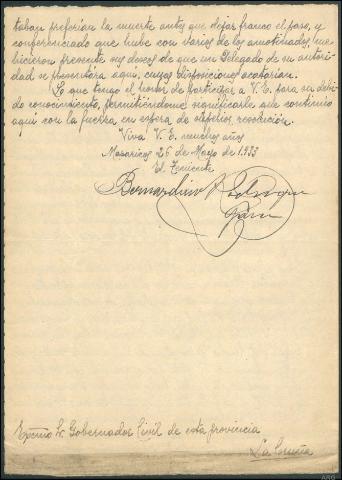 taban preferian la muerte antes que dejar franco el paso, y
conferenciado que hube con varios de los amotinados, me
hicieron presente sus deseos de que un Delegado de su autori-
dad se presentara aqui, cuyas disposiciones acatarian.
Lo que tengo el honor de participar a V.E. para su debi-
do conocimiento, permitiéndome significarle que continuo
aqui con la fuerza, en espera de superior resolución.
Viva V. E. muchos años
Mazaricos 26 de Mayo de 1.933
El Teniente
Bernardino
Excmo Sr. Gobernador Civil de esta provincia
La Coruña
ARG